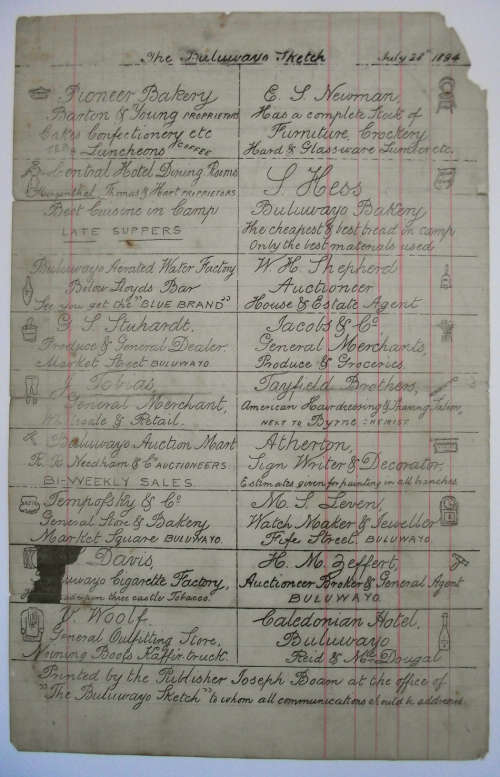 The Buluwayo Sketch July 28th 1894
Pioneer Bakery
Barton & Young PROPRIETORS
Cakes Confectionery etc
TEA & Luncheons COFFEE
Central Hotel Dining Rooms
Thomas & Hart PROPRIETORS.
Best Cuisine in Camp
LATE SUPPERS
Buluwayo Aerated Water Factory
Below Lloyds Bar
See you get the "BLUE BRAND"
G. S. Stuhardt.
Produce & General Dealer.
Market Street BULUWAYO.
J. Tobias,
General Merchant,
& Retail.
Buluwayo Auction Mart
Needham & Co AUCTIONEERS.
BI-WEEKLY SALES.
Tempofsky & Co
General Store & Bakery
Market Square BULUWAYO.
Davis,
uwayo Cigarette Factory,
three castle Tobacco.
Woolf.
General Outfitting Store,
Mining Boots Kaffir truck.
E. S. Newman,
Has a complete Stock of
Furniture, Crockery
Hard & Glassware Lumber etc.
S. Hess
Buluwayo Bakery
The cheapest & best bread in camp
Only the best materials used
W. H. Shepherd
Auctioneer
House & Estate Agent
Jacobs & Co
General Merchants,
Produce & Groceries.
Tayfield Brothers,
American Hairdressing & Shaving Saloon,
NEXT TO BYRNE CHEMIST
Atherton,
Sign Writer & Decorator.
Estimates given for painting in all branches
M. S. Leven,
Watch Maker & Jeweller
Fife Street, BULUWAYO.
H. M. Zeffert,
Auctioneer Broker & General Agent
BULUWAYO.
Caledonian Hotel,
Buluwayo
Reid & McDougal
Printed by the Publisher Joseph Boam at the office of
"The Buluwayo Sketch" to whom all communications should be addressed.